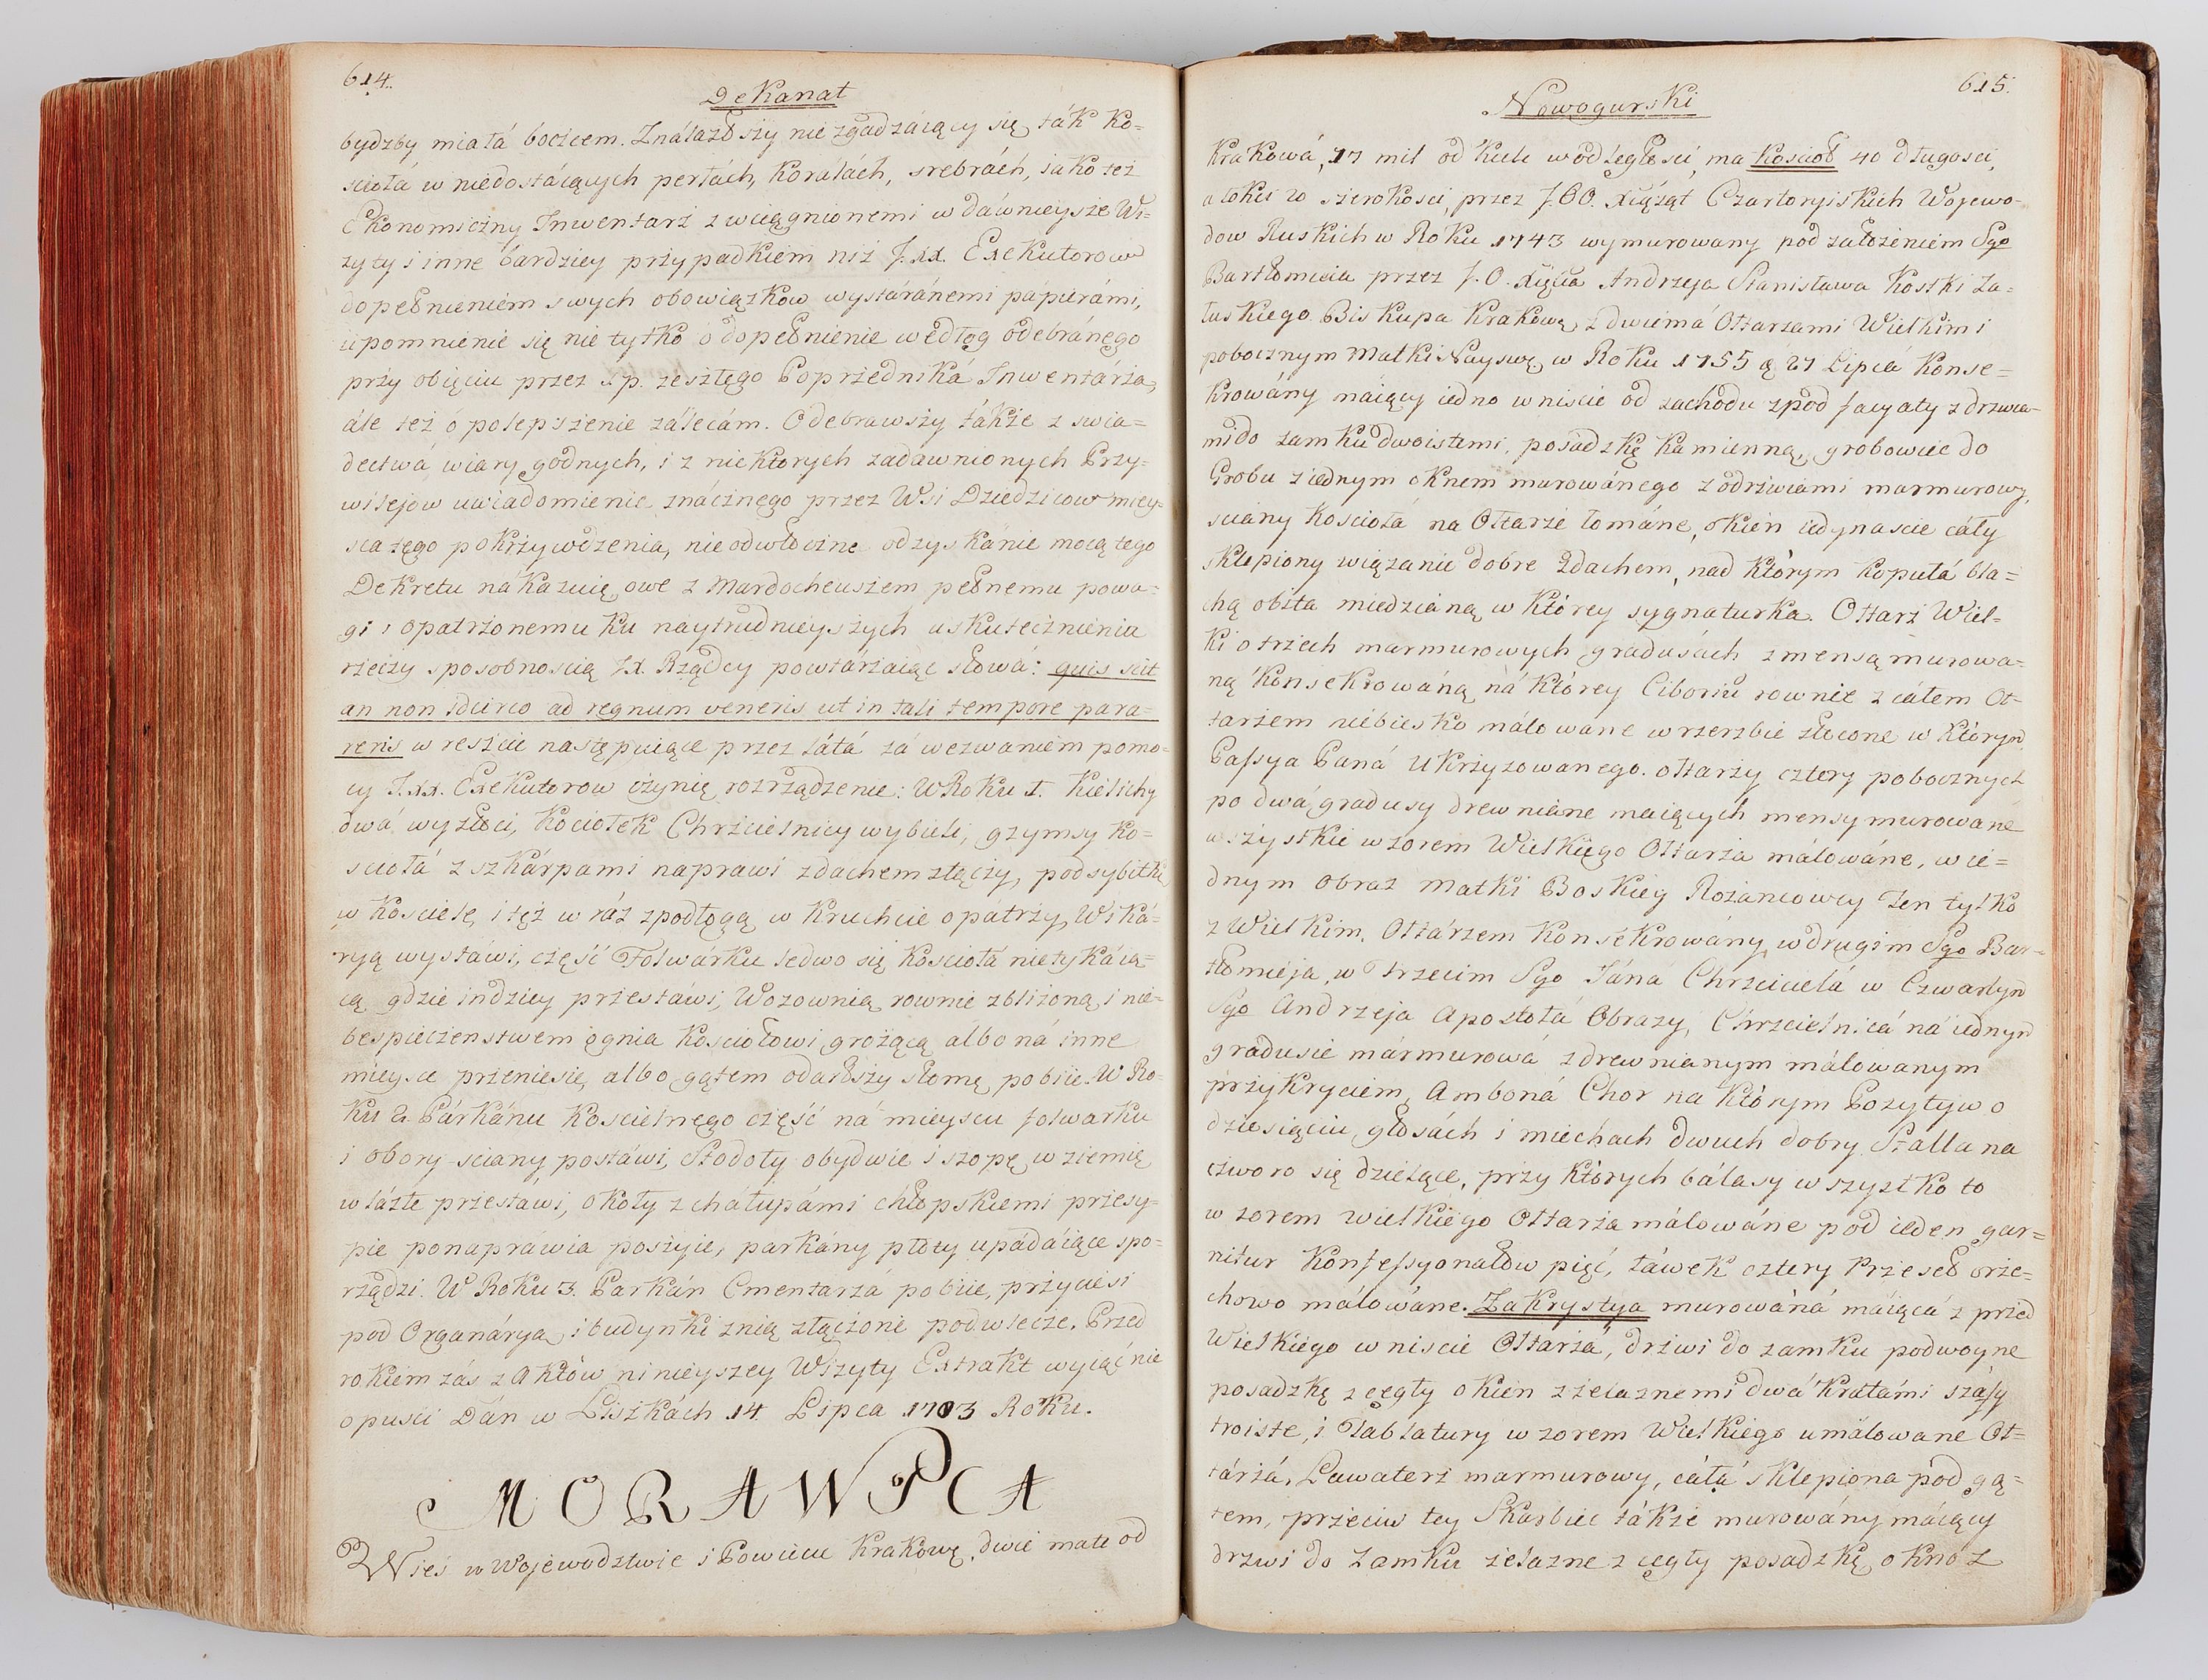 614.
Dekanat
bydźby miałá bocicem. Ználazłszy nie zgadzáiący się ták Ko=
sciołá w niedostáiących perłách, Korálách, srebrách, iako też
Ekonomiczny Inwentarz z wciągnionemi w dáwnieysze Wi=
zyty i inne bardziey przypadkiem niż J.XX. Exekutorow
dopełnieniem swych obowiązkow wystáránemi pápierámi,
upomnienie się nie tylko o dopełnienie według odebránego
przy obięciu przez s.p. zeszłego Poprzedniká Inwentárza,
ále też ó polepszenie zálecám. Odebrawszy tákże z swia=
dectwá wiary godnych, i z niektorych zadawnionych Przy=
wilejow uwiadomienie znácznego przez Wsi Dziedzicow miey=
sca tego pokrzywdzenia, nieodwłoczne odzyskánie mocą tego
Dekretu nákazuię owe z Mardocheuszem pełnemu powa=
gi i opatrzonemu ku naytrudnieyszych uskutecznienia
rzeczy sposobnoscią JX. Rządcy powtárzaiąc słowá: quis scit
an non idcirco ad regnum veneris ut in tali tempore para=
reris w reszcie nástępuiące przez látá zá wezwaniem pomo=
cy J.XX. Exekutorow czynię rozrządzenie: W Roku 1. Kielichy
dwá wyzłoci, Kociołek Chrzcielnicy wybieli, gzymsy Ko=
sciołá z szkárpami naprawi z dachem złączy, podsybitkę
w Kosciele, i też w ráz z podłogą w Kruchcie opátrzy, Wiká=
ryą wystáwi, część Folwárku ledwo się Kosciołá nie tykáią=
cą gdzie indziey przestáwi, Wozownią rownie zbliżoną i nie=
bespieczenstwem ognia Kosciołowi grożącą albo ná inne
mieysce przeniesie, albo gątem odarłszy słomę pobiie. W Ro=
ku 2. Párkánu Koscielnego część ná mieyscu folwarku
i obory sciany postáwi, Stodoły obydwie i szopę w ziemię
wlázłe przestáwi, okoły z chałupámi chłopskiemi przesy=
pie ponapráwia poszyie, parkány płoty upádáiące spo=
rządzi. W Roku 3. Parkán Cmentarzá pobiie, przyciesi
pod Organáryą i budynki z nią złączone podwlecze. Przed
rokiem zás z Aktów ninieyszey Wizyty Extrakt wyiąć nie
opusci Dán w Liszkách 14. Lipca 1783 Roku.
MORAWICA
Wieś w Wojewodztwie i Powiecie Krakowę, dwie małe od
Nowogurski
615.
Krakowá, 17 mil od Kiele w odległosci, ma Koscioł 40 długosci,
a łokci 20 szerokosci, przez J.OO. Xiążąt Czartoryiskich Wojewo=
dow Ruskich w Roku 1743 wymurowany pod założeniem Sgo
Bartłomieia przez J.O. Xięcia Andrzeja Stanisława Kostki Za=
łuskiego Biskupa Krakowę z dwiemá Ołtarzami Wielkim i
pobocznym Matki Nayswę w Roku 1755 d. 27 Lipca Konse=
krowány máiący iedno wniscie od zachodu zpod facyaty z drzwia=
mi do zamku dwoistemi, posádzkę Kamienną, grobowiec do
Grobu z iednym oknem murowánego z odrzwiami marmurowy,
sciany Kosciołá na Ołtarze łománe, okien iedynascie cáły
sklepiony wiązanie dobre z dachem, nad którym Kopułá bla=
chą obita miedzianą w którey sygnaturka. Ołtarz Wiel=
ki o trzech marmurowych gradusách z mensą murowa=
ną konsekrowáną ná ktorey Ciboriũ rownie z cáłem Oł=
tarzem niebiesko málowane w rzerzbie złocone w którym
Passya Paná Ukrzyzowanego. ołtarzy cztery pobocznych
po dwá gradusy drewniane maiących mensy murowáne
wszystkie wzorem Wielkiego Ołtarza málowáne, w ie=
dnym Obraz Matki Boskiey Rożancowey ten tylko
z Wielkim Ołtárzem Konsekrowány, w drugim Sgo Bar=
tłomieja, w Trzecim Sgo Jáná Chrzcicielá w Czwartym
Sgo Andrzeja Apostołá Obrazy, Chrzcielnicá ná iednym
gradusie mármurowá z drewnianym málowanym
przykryciem, Amboná Chor na którym Pozytyw o
dziesięciu głosách i miechach dwuch dobry Stalla na
czworo się dzielące, przy których bálasy wszystko to
wzorem wielkiego Ołtarza málowáne pod ieden gar=
nitur Konfessyonałow pięć, łáwek cztery Przeseł orze=
chowo málowáne. Zakrystya murowáná máiącá z przed
Wielkiego wniscie Ołtarzá, drzwi do zamku podwoyne
posadzkę z cegły okien z żelaznemi dwá Kratámi száfy
troiste, i Tablatury wzorem Wielkiego umálowane Oł=
tárzá, Lawaterz marmurowy, cáłá sklepiona pod gą=
tem, przeciw tey Skarbiec tákże murowány máiący
drzwi do Zamku żelazne z cegły posadzkę okno z